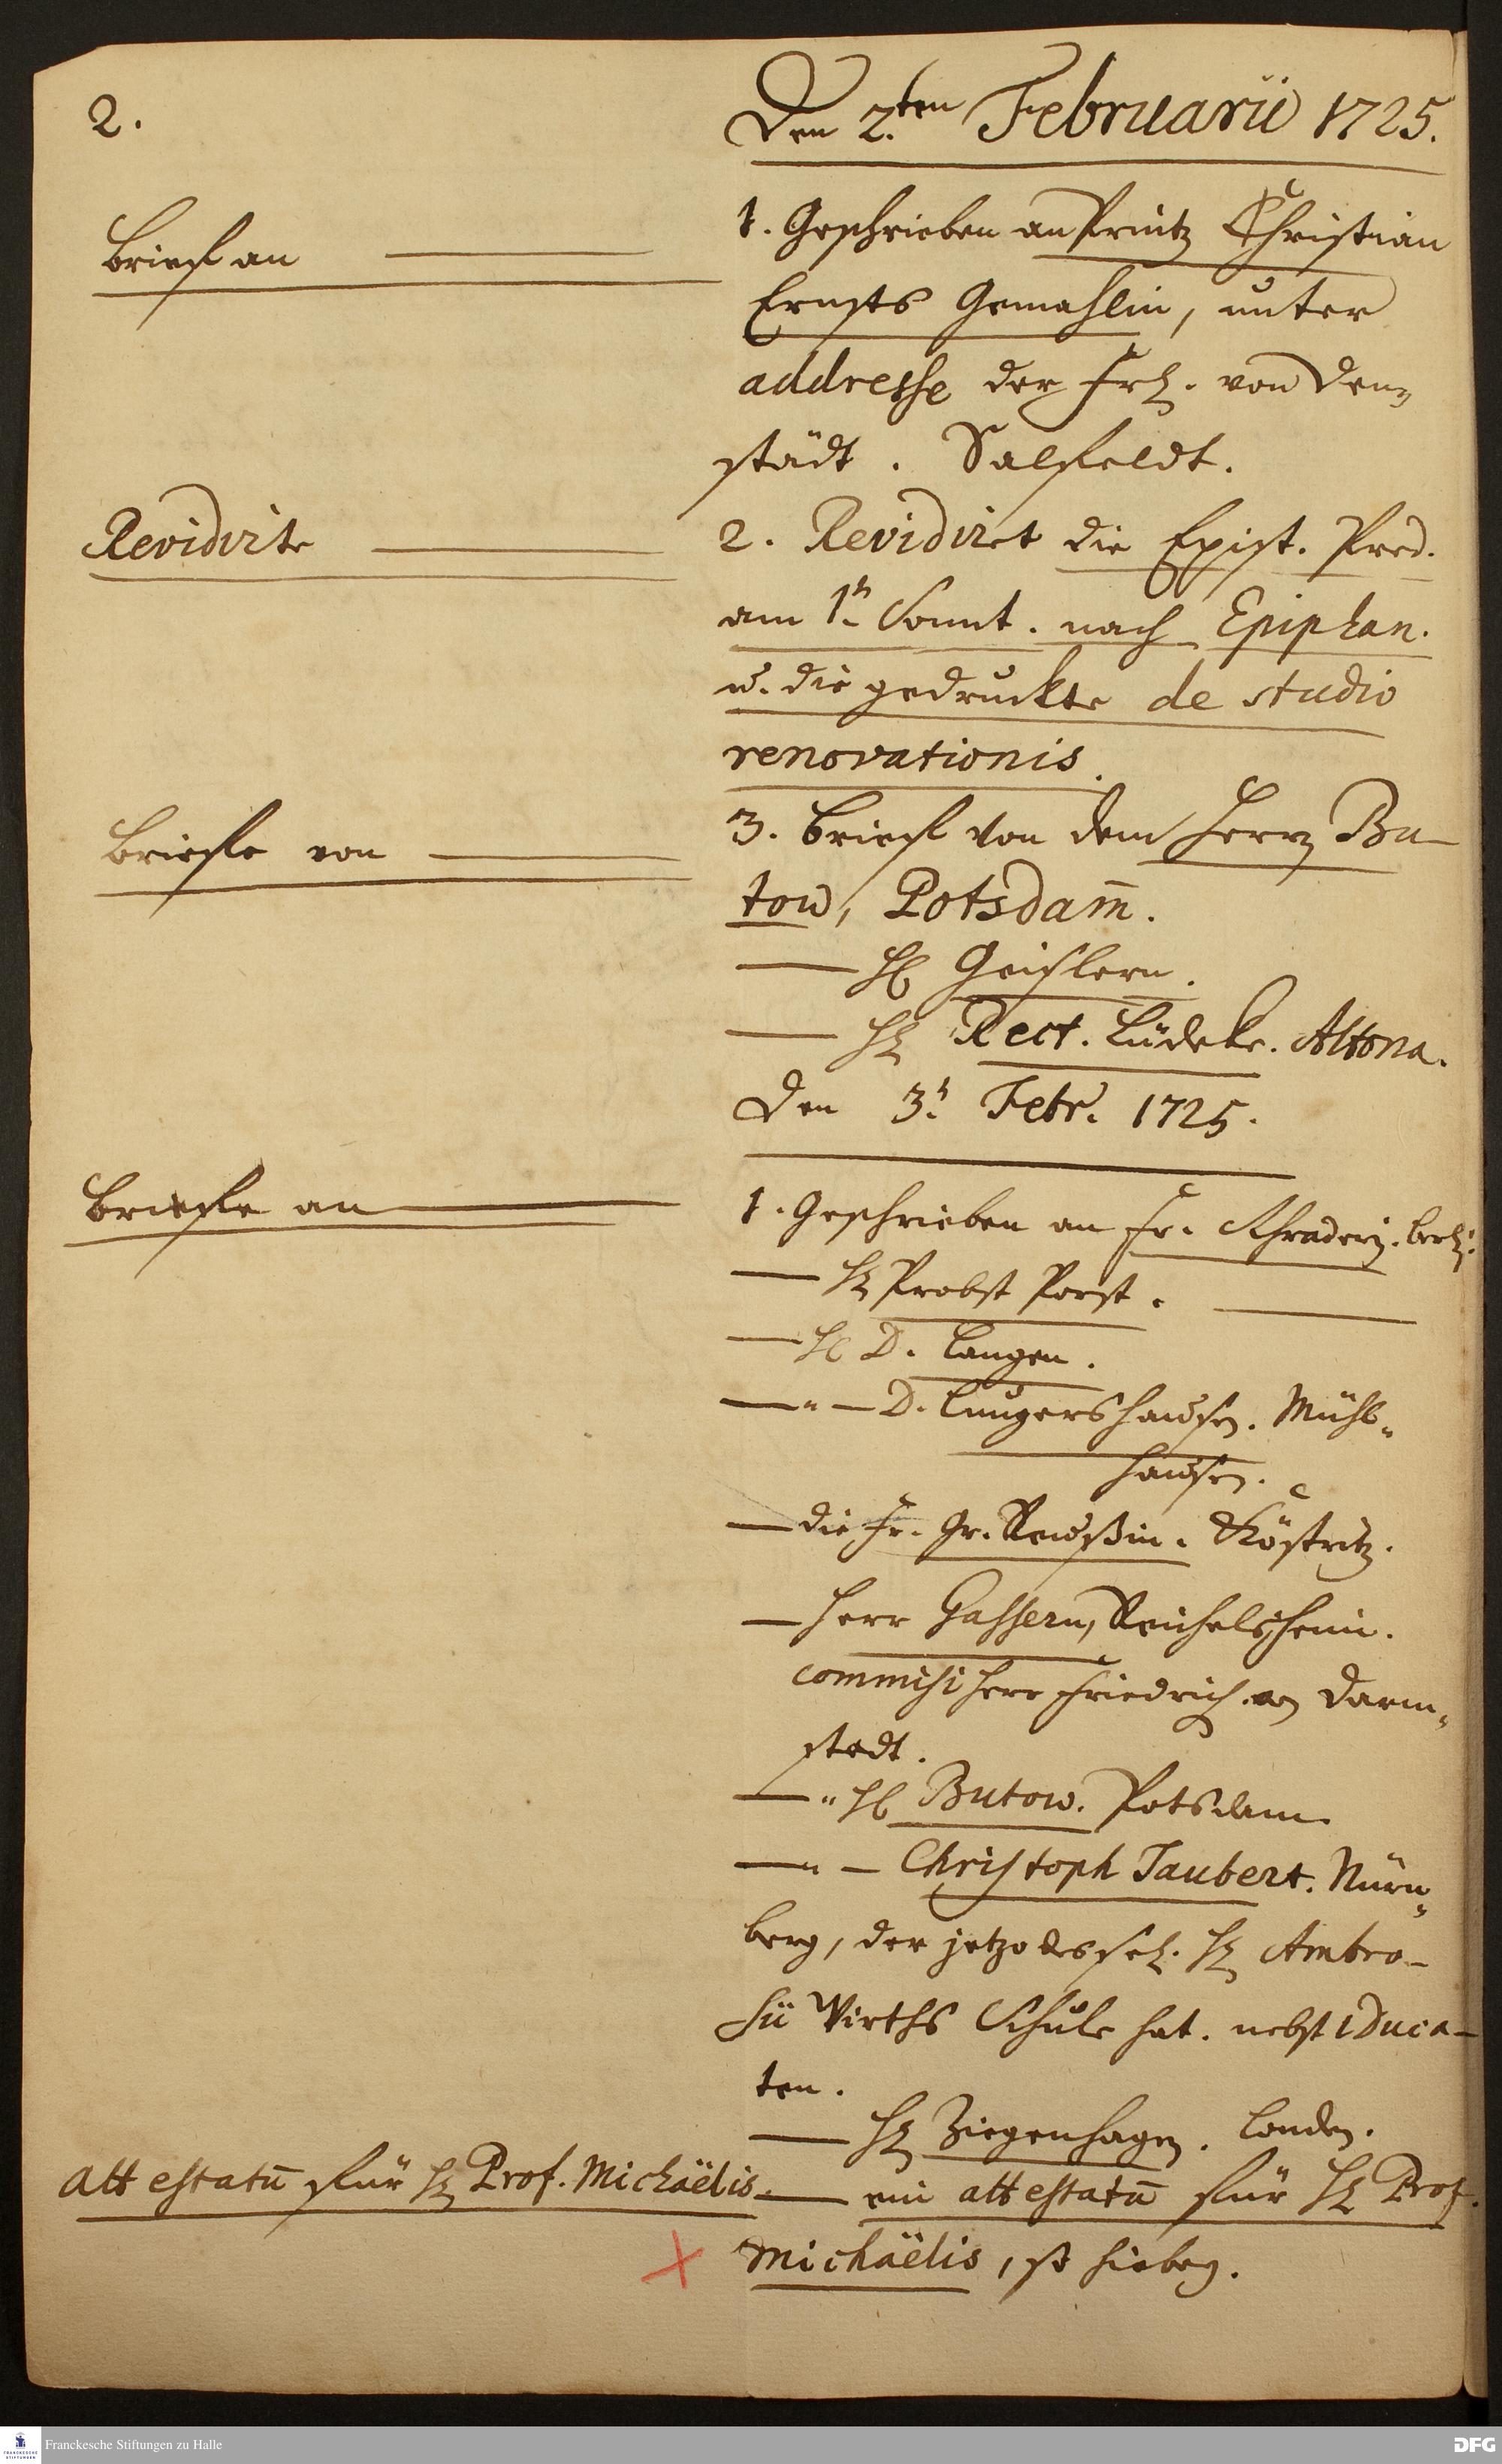 2.
Den 2.ten Februarii 1725.
Brief an
1. Geschrieben an Printz Christian
Ernsts Gemahlin, unter
addresse der Frl. von Den-
städt. Salfeldt.
Revidirte
2. Revidiret die Epist. Pred.
am 1n Sonnt. nach Epiphan.
u. die gedruckte de studio
renovationis.
Briefe von
3. Brief von dem Herrn Bu-
tow, Potsdam̄.
— H. Geislern.
— H. Rect. Lüdeke. Altona.
Den 3n. Febr. 1725.
Briefe an
1. Geschrieben an Fr. Schraderin. Berl.
— H. Probst Porst.
— H. D. Langen.
— " — D. Lungershausen. Mühl-
hausen.
— die Fr. Gr. Reußin. Köstritz.
— Herr Gassern, Reichelsheim.
commisi Herr Friedrich. an Darm-
stadt.
— " H. Butow. Potsdam.
— " — Christoph Taubert. Nürn-
berg, der jetzo des sel. H. Ambro-
sii Wirths Schule hat. nebst 1 Duca-
ten.
— H. Ziegenhagen. Londen.
attestatū für H. Prof. Michaëlis.
— ein attestatū für H. Prof.
Michaëlis, ist hiebey.
Franckesche Stiftungen zu Halle
DFG